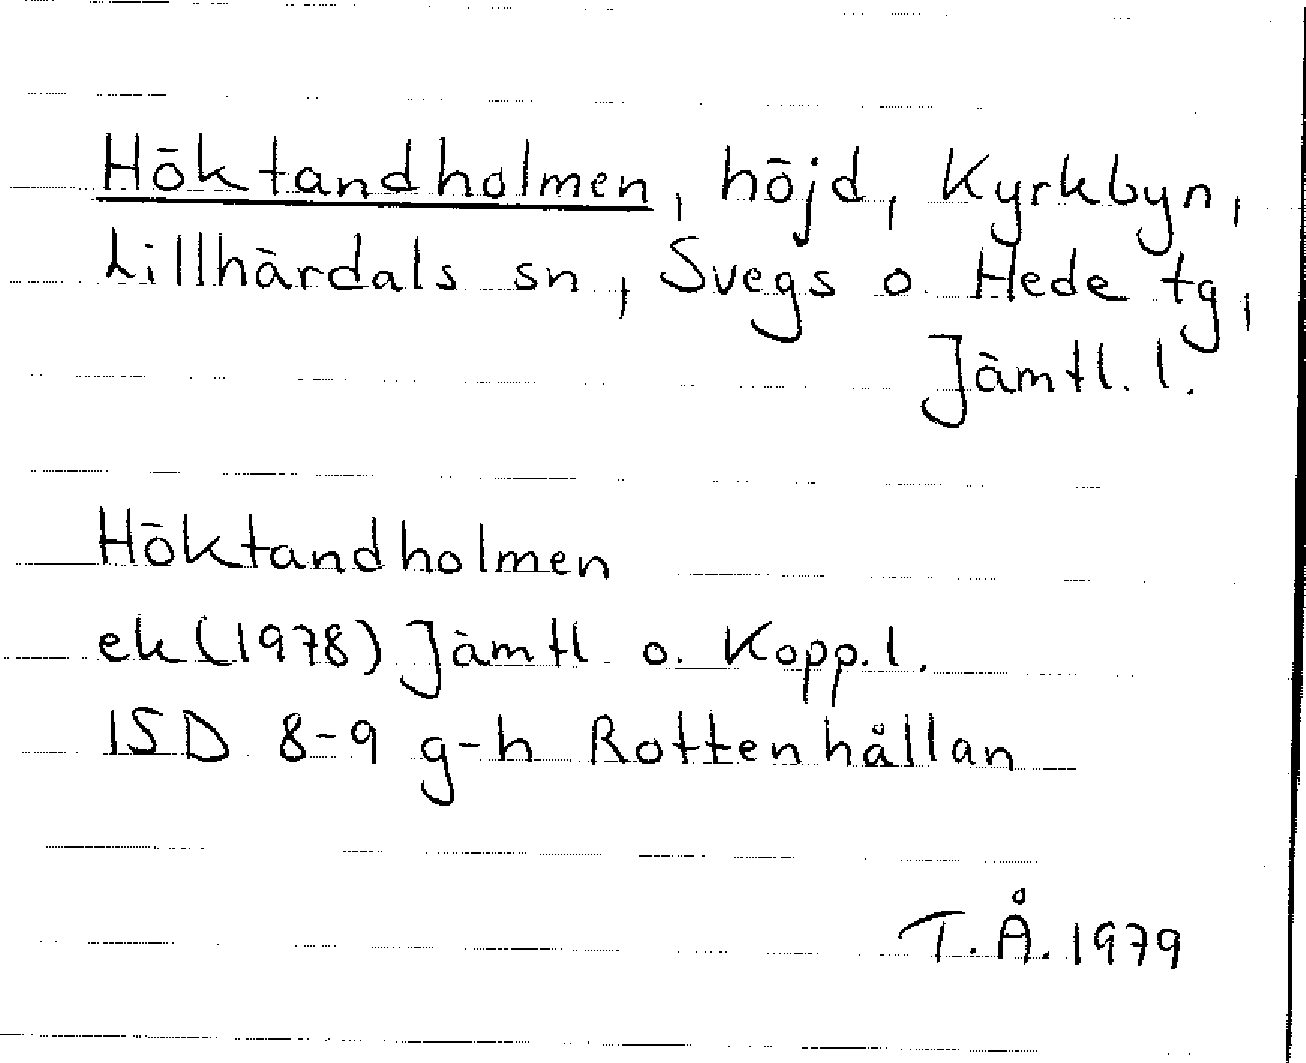 Höktandholmen, höjd, Kyrkbyn,
Lillhärdals sn, Svegs o. Hede tg,
Jämtl. l.
Höktandholmen
ek (1978) Jämtl o. Kopp. l.
15D 8-9 g-h Rottenhållan
T.Å. 1979